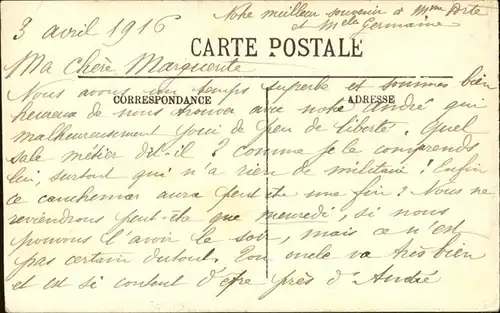 3 avril 1916
Notre meilleur souvenir à Mme
et Melle Germaine
CARTE POSTALE
Ma Chère Marguerite
CORRESPONDANCE
ADRESSE
Nous avons un temps superbe et sommes bien
heureux de nous trouver avec notre André qui
malheureusement joui de peu de liberté. Quel
sale métier dit-il ? Comme je le comprends
lui, surtout qui n'a rien de militaire ! Enfin
ce cauchemar aura peut être une fin ? Nous ne
reviendrons peut-être que mercredi, si nous
pouvons l'avoir le soir, mais ce n'est
pas certain du tout. Ton oncle va très bien
et est si content d'être près d'André